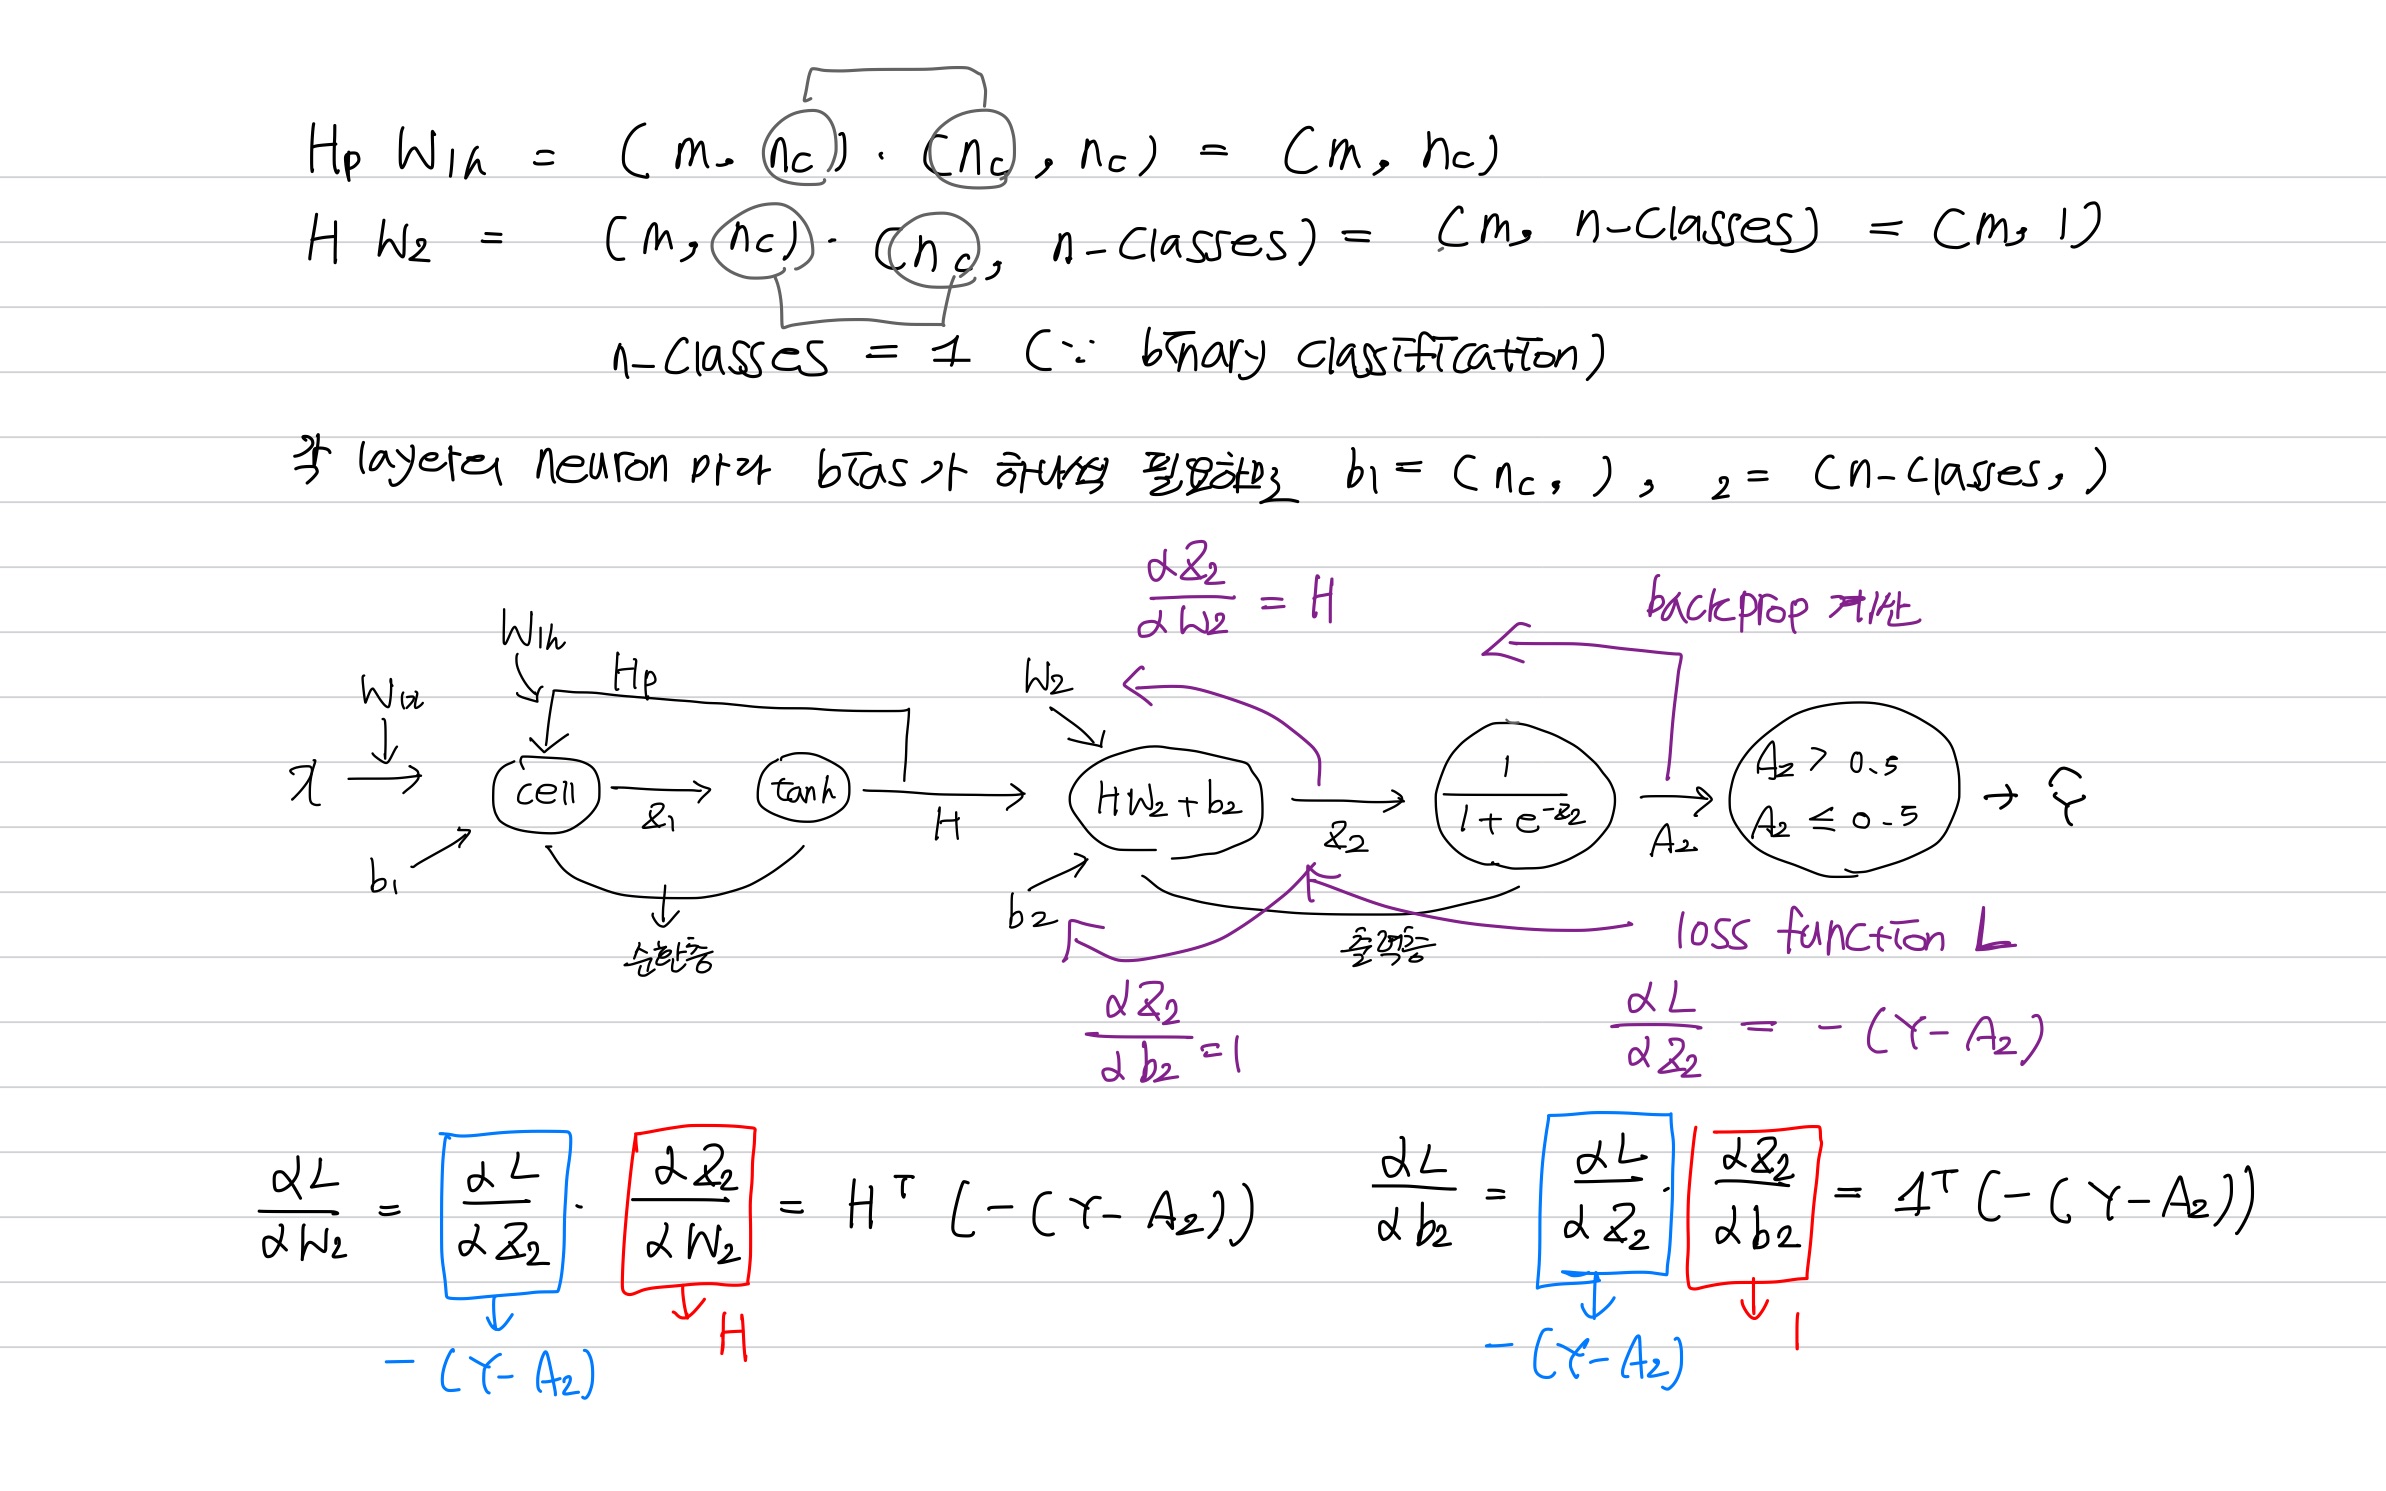 Hp W1h = (m, nc) · (nc, nc) = (m, nc)
H W2 = (m, nc) · (nc, n-classes) = (m, n-classes) = (m, 1)
n-classes = 1 (∵ binary classification)
각 layer의 neuron bias가 b1 = (nc, ), 2 = (n-classes, )
∂Z2/∂W2 = H
backprop 시작
W1h
Hp
W1x
W2
x
cell
Z1
tanh
H
HW2 + b2
Z2
1/(1 + e^-Z2)
A2
A2 > 0.5
A2 ≤ 0.5
→ Ŷ
b1
b2
순환층
출력층
loss function L
∂Z2/∂b2 = 1
∂L/∂Z2 = -(Y-A2)
∂L/∂W2 = ∂L/∂Z2 · ∂Z2/∂W2 = H^T (-(Y-A2))
-(Y-A2)
H
∂L/∂b2 = ∂L/∂Z2 · ∂Z2/∂b2 = 1^T (-(Y-A2))
-(Y-A2)
1